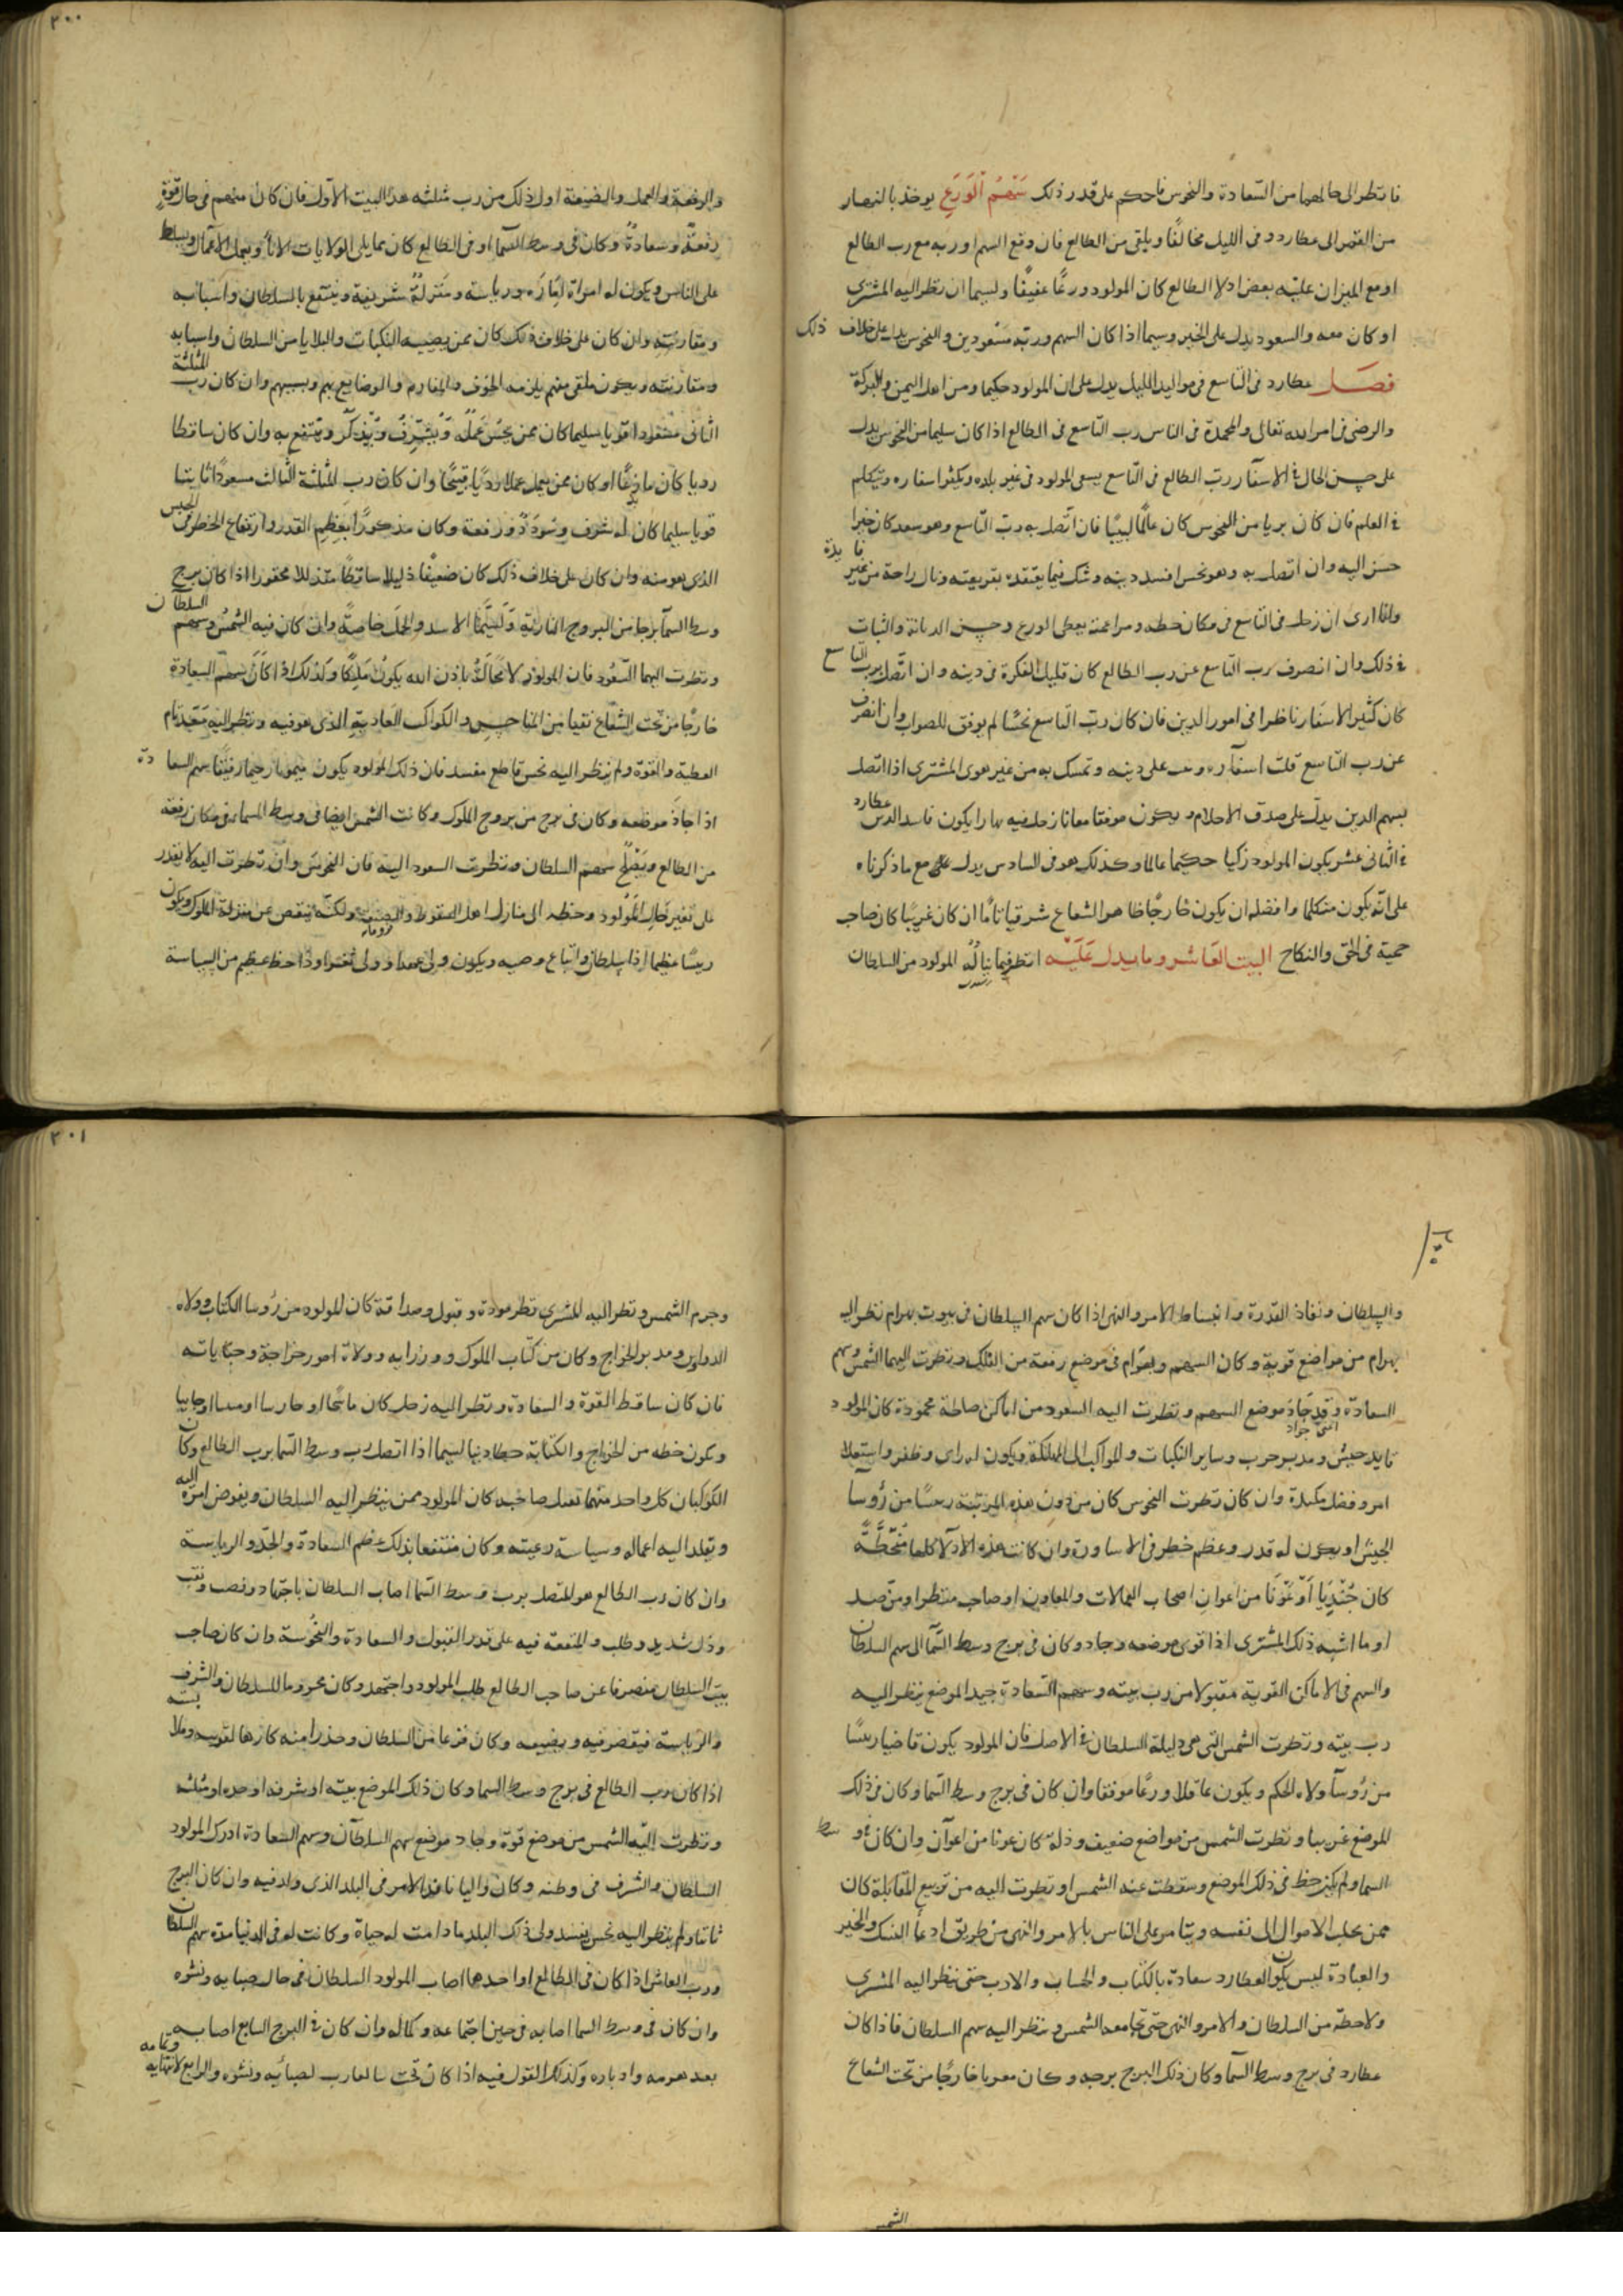 فانظر الى حالهما من السعادة والنحوس فاحكم على قدر ذلك سهم الورع يوخذ بالنهار
من القمر الى عطارد وفى الليل مخالفًا ويلقى من الطالع فان وقع السهم او ربه مع رب الطالع
او مع الميزان عليه بعض ادلا الطالع كان المولود ورعًا عفيفًا ولسيما ان نظر اليه المشترى
او كان معه والسعود يدل على الخير وسيما اذا كان السهم وربه مسعودين والنحوس يدل على خلاف ذلك
فصل عطارد فى التاسع فى مواليد الليل يدل على ان المولود حكيما ومن اهل اليمن والبركة
والرضى فى امر الله تعالى والمحمدة فى الناس رب التاسع فى الطالع اذا كان سليما من النحوس يدل
على حسن الحال فى الاسفار رب الطالع فى التاسع يسعى المولود فى غير بلده ويكثر اسفاره ويتكلم
فى العلم فان كان بريا من النحوس كان عالمًا لبيبًا فان اتصل به رب التاسع وهو سعد كان خيرا
حسن اليه وان اتصل به وهو نحس افسد دينه وشك فيما يعتقده بقريعته ونال راحة من غير فايدة
وانا ارى ان زحل فى التاسع فى مكان حظه ومزاعمة يعطى الورع وحسن الديانة والثبات
فى ذلك وان انصرف رب التاسع عن رب الطالع كان قليل الفكرة فى دينه وان اتصل برب التاسع
كان كثير الاسفار ناظرا فى امور الدين فان كان رب التاسع نحسًا لم يوفق للصواب وان انصرف
عن رب التاسع قلت اسفاره وثبت على دينه وتمسك به من غير هوى المشترى اذا اتصل
بسهم الدين يدل على صدق الاحلام ويكون موفقا معانا زحل فيه نهارا يكون فاسد الدين عطارد
فى الثانى عشر يكون المولود زكيا حكيما عالما وكذلك هو فى السادس يدل على مع ما ذكرناه
على انه يكون متكلما وافضله ان يكون خارجًا ظاهر الشعاع شرقيا تامًا ان كان غريبًا كان صاحب
حمية فى الحق والنكاح البيت العاشر وما يدل عليه انظر فيما يناله المولود من السلطان
والرفعة والعمل والصنيعة اول ذلك من رب مثلثه هذا البيت الاول فان كان منهم فى حال قوة
رفعة وسعادة وكان فى وسط السما او فى الطالع كان مما يلى الولايات وبعمل الاعمال وسلط
على الناس ويكون له امراة ورياسة ومنزلة شريفة وينتفع بالسلطان واسبابه
ومقارنته وان كان على خلاف ذلك كان ممن يصيبه النكبات والبلايا من السلطان واسبابه
ومقارنته ويكون ملقى منهم يلزمه الخوف والمغارم والوضايع بهم وبسببهم وان كان رب المثلثة
الثانى مسعودا قويا سليما كان ممن يحسن عمله ويشرف ويذكر وينتفع به وان كان ساقطا
رديا كان او كان ممن يعمل عملا رديًا قبيحًا وان كان رب المثلثة الثالث مسعودًا ثابتا
قويا سليما كان له شرف وسودد ورفعة وكان مذكورًا بعظيم القدر وارتفاع الخطر فى الجنس
الذى هو منه وان كان على خلاف ذلك كان ضعيفًا ذليلا ساقطًا متذللا محقورا اذا كان برج
وسط السما برجا من البروج النارية ولسيما الاسد والحمل خاصة وان كان فيه الشمس وسهم السلطان
ونظرت اليهما السعود فان المولود لا محالة باذن الله يكون ملكًا وكذلك اذا كان سهم السعادة
خارجًا من تحت الشعاع نقيا من المناحس والكواكب العادية الذى هو فيه ونظر اليه تام
العطية والقوة ولم ينظر اليه نحس قاطع مفسد فان ذلك المولود يكون ميمونا رحيما رفيقا سهم السعادة
اذا جاد موضعه وكان فى برج من بروج الملوك وكانت الشمس ايضا فى وسط السما او فى مكان رفعة
من الطالع وينقلع سهم السلطان ونظرت السعود اليه فان النحوس وان نظرت اليه لا يقدر
على تغير حال المولود وحظه الى منازل اهل السقوط ولكنه ينقص عن منزلة الملوك ويكون
رئيسًا عظيما اذا سلطان واتباع وصيه ويكون ولى عهد او ولى ثغر او ذا حظ عظيم من السياسة
والسلطان ونفاذ القدرة وانبساط الامر والنهى اذا كان سهم السلطان فى بيوت بهرام نظر اليه
بهرام من مواضع قوية وكان السهم وبهرام فى موضع رفعة من الفلك ونظرت اليهما الشمس وسهم
السعادة وقد جاد موضع السهم ونظرت اليه السعود من اماكن صالحة محمودة كان المولود
قايد جيش ومدبر حرب وساير النكبات والمواكب الى المملكة ويكون له راى وظفر واستعلا
امر وفضل مكيدة وان كان نظرت النحوس كان من دون هذه المرتبة رئيسًا من رؤسآ
الجيش او يكون له قدر وعظم خطر فى الاساورة وان كانت هذه الادلآ كلها منحطة
كان جنديا او عونا من اعوان اصحاب العمالات والمعاون او صاحب منتظرا ومترصد
او ما اشبه ذلك المشترى اذا قوى موضعه وجاد وكان فى برج وسط السما الى سهم السلطان
والسهم فى الاماكن القوية مقبولا من رب بيته وسهم السعادة جيد الموضع ينظر اليه
رب بيته ونظرت الشمس التى هى دليلة السلطان فى الاصل فان المولود يكون قاضيا رئيسًا
من رؤسآ ولاه الحكم ويكون عاقلا ورعًا موفقا وان كان فى برج وسط السما وكان فى ذلك
الموضع غريبا ونظرت الشمس من مواضع ضعيف وذلة كان عونا من اعوان وان كان فى وسط
السما ولم يكن حظ فى ذلك الموضع وسقطت عنه الشمس او نظرت اليه من تربيع المقابلة كان
ممن يجلب الاموال الى نفسه ويتامر على الناس بالامر والنهى من طريق ادعآ النسك والخير
والعبادة ليس يكون لعطارد سعادة بالكتاب والحساب والادب حتى ينظر اليه المشترى
ولاحظه من السلطان والامر والنهى حتى تجامعه الشمس وينظر اليه سهم السلطان فاذا كان
عطارد فى برج وسط السما وكان ذلك البرج برجه وكان خارجًا من تحت الشعاع
وجرم الشمس ونظر اليه المشترى نظر مودة وقبول وصداقة كان المولود من رؤسا الكتاب وولاه
الدواوين ومدبر الخراج وكان من كتاب الملوك ووزرايه وولاة امور خراجه وجباياته
فان كان ساقط القوة والسعادة ونظر اليه زحل كان ماسحًا او حارسا او جابيا
ويكون حظه من الخراج والكتابة حظا دنيا لسيما اذا اتصل رب وسط السما برب الطالع وكان
الكوكبان كل واحد منهما صاحبه كان المولود ممن ينظر اليه السلطان ويفوض امره اليه
ويقلد اليه اعماله وسياسة رعيته وكان منتفعا بذلك عظيم السعادة والجد والرياسة
وان كان رب الطالع هو المتصل برب وسط السما اصاب السلطان باجتهاد ونصب وتعب
وذل شديد وطلب والمنفعة فيه على قدر القبول والسعادة والنحوسة وان كان صاحب
بيت السلطان منصرفا عن صاحب الطالع طلب المولود واجتهد وكان محروما للسلطان والشرف
والرياسة فيقصر فيه ويضيعه وكان فزعا من السلطان وحذرا منه كارها لقربه
اذا كان رب الطالع فى برج وسط السما وكان ذلك الموضع بيته او شرفه او حده او مثلثه
ونظرت اليه الشمس من موضع قوة وجاد موضع سهم السلطان وسهم السعادة ادرك المولود
السلطان والشرف فى وطنه وكان واليا نافذ الامر فى البلد الذى ولد فيه وان كان البرج
ثابتا ولم ينظر اليه نحس يفسد ولى ذلك البلد ما دامت له حياة وكانت له فى الدنيا مدة سهم السلطان
ورب العاشر اذا كان فى الطالع او احدهما اصاب المولود السلطان فى حال صبايه ونشوه
وان كان فى وسط السما اصابه فى حين اجتماعه وكماله وان كان فى البرج السابع اصابه
بعد هرمه وادباره وكذلك القول فيه اذا كان تحت لصبائيه ونشوه والرابع لانتهايه وتمامه